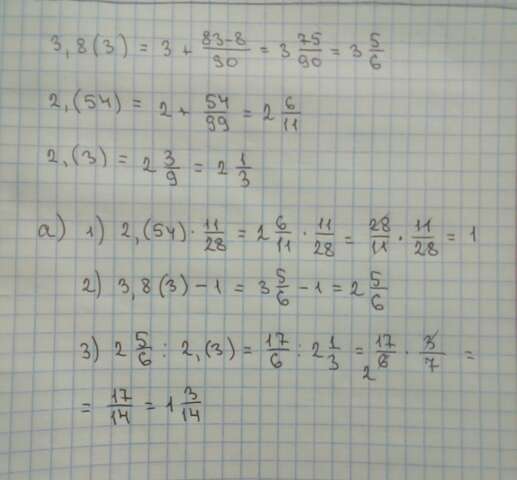 3,8(3) = 3 + \frac{83-8}{90} = 3\frac{75}{90} = 3\frac{5}{6}
2,(54) = 2 + \frac{54}{99} = 2\frac{6}{11}
2,(3) = 2\frac{3}{9} = 2\frac{1}{3}
а) 1) 2,(54) · \frac{11}{28} = 2\frac{6}{11} · \frac{11}{28} = \frac{28}{11} · \frac{11}{28} = 1
2) 3,8(3) - 1 = 3\frac{5}{6} - 1 = 2\frac{5}{6}
3) 2\frac{5}{6} : 2,(3) = \frac{17}{6} : 2\frac{1}{3} = \frac{17}{6}_2 · \frac{3}{7} =
= \frac{17}{14} = 1\frac{3}{14}